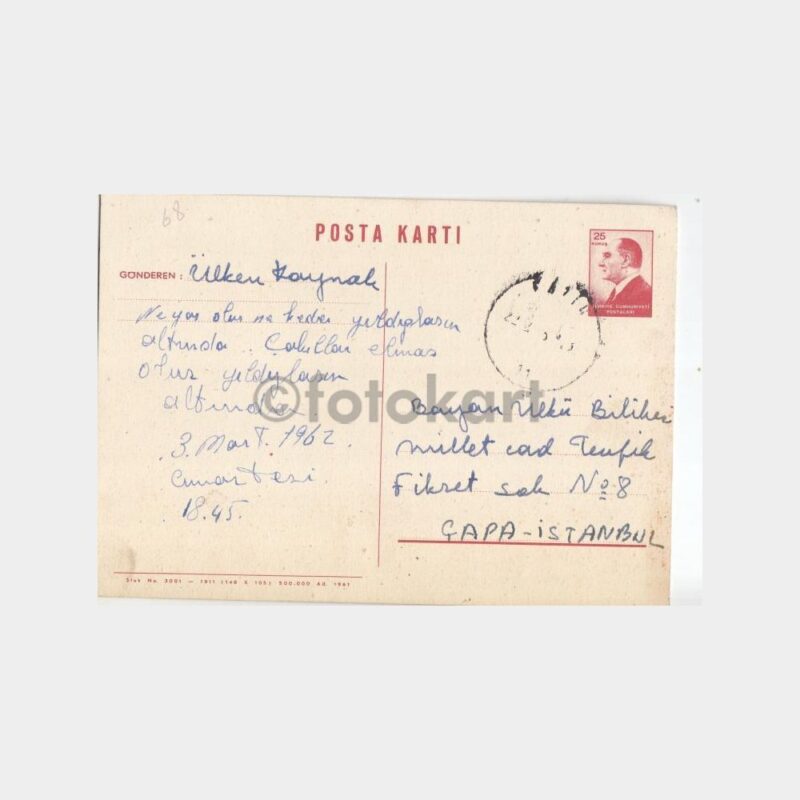 68
POSTA KARTI
25
KURUŞ
TÜRKİYE CUMHURİYETİ
POSTALARI
GÖNDEREN : Ülken Kaynak
altında .. Çakıllar elmas
Olur yıldızların
altında
3. Mart. 1962.
Cumartesi
18.45.
11
©fotokart
Bayan Ülkü
Millet cad Tevfik
Fikret sok No 8
ÇAPA-İSTANBUL
Stok No. 3001 — 1911 (148 X 105) 500.000 Ad. 1961